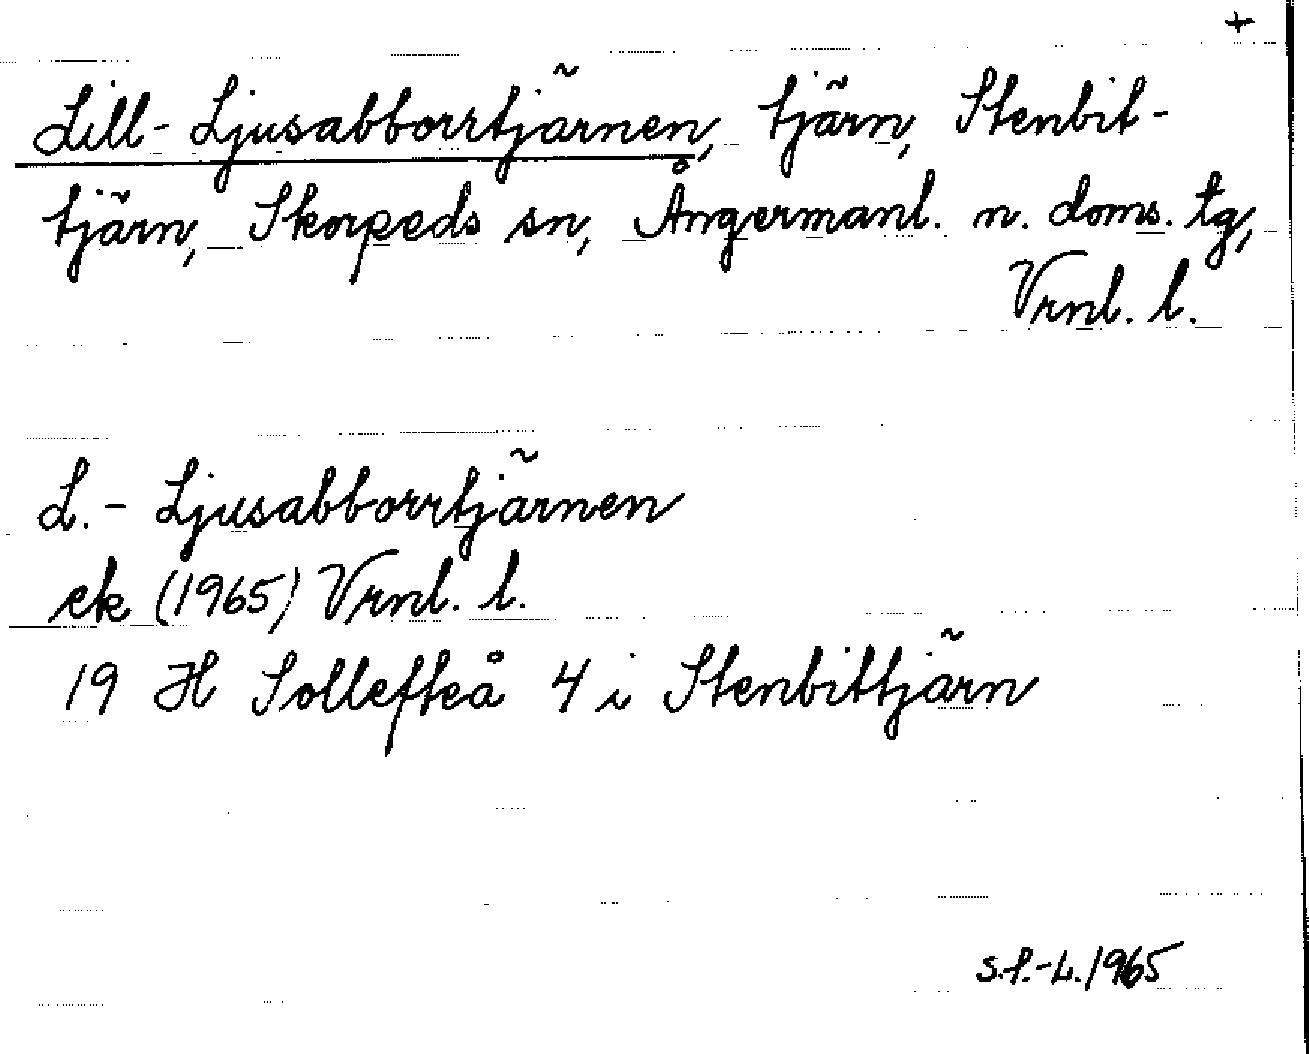 +
Lill-Ljusabborrtjärnen, tjärn, Stenbit-
tjärn, Skorpeds sn, Ångermanl. n. doms. tg,
Vrnl. l.
L.-Ljusabborrtjärnen
ek (1965) Vrnl. l.
19 H Sollefteå 4 i Stenbittjärn
S.P.-L. 1965